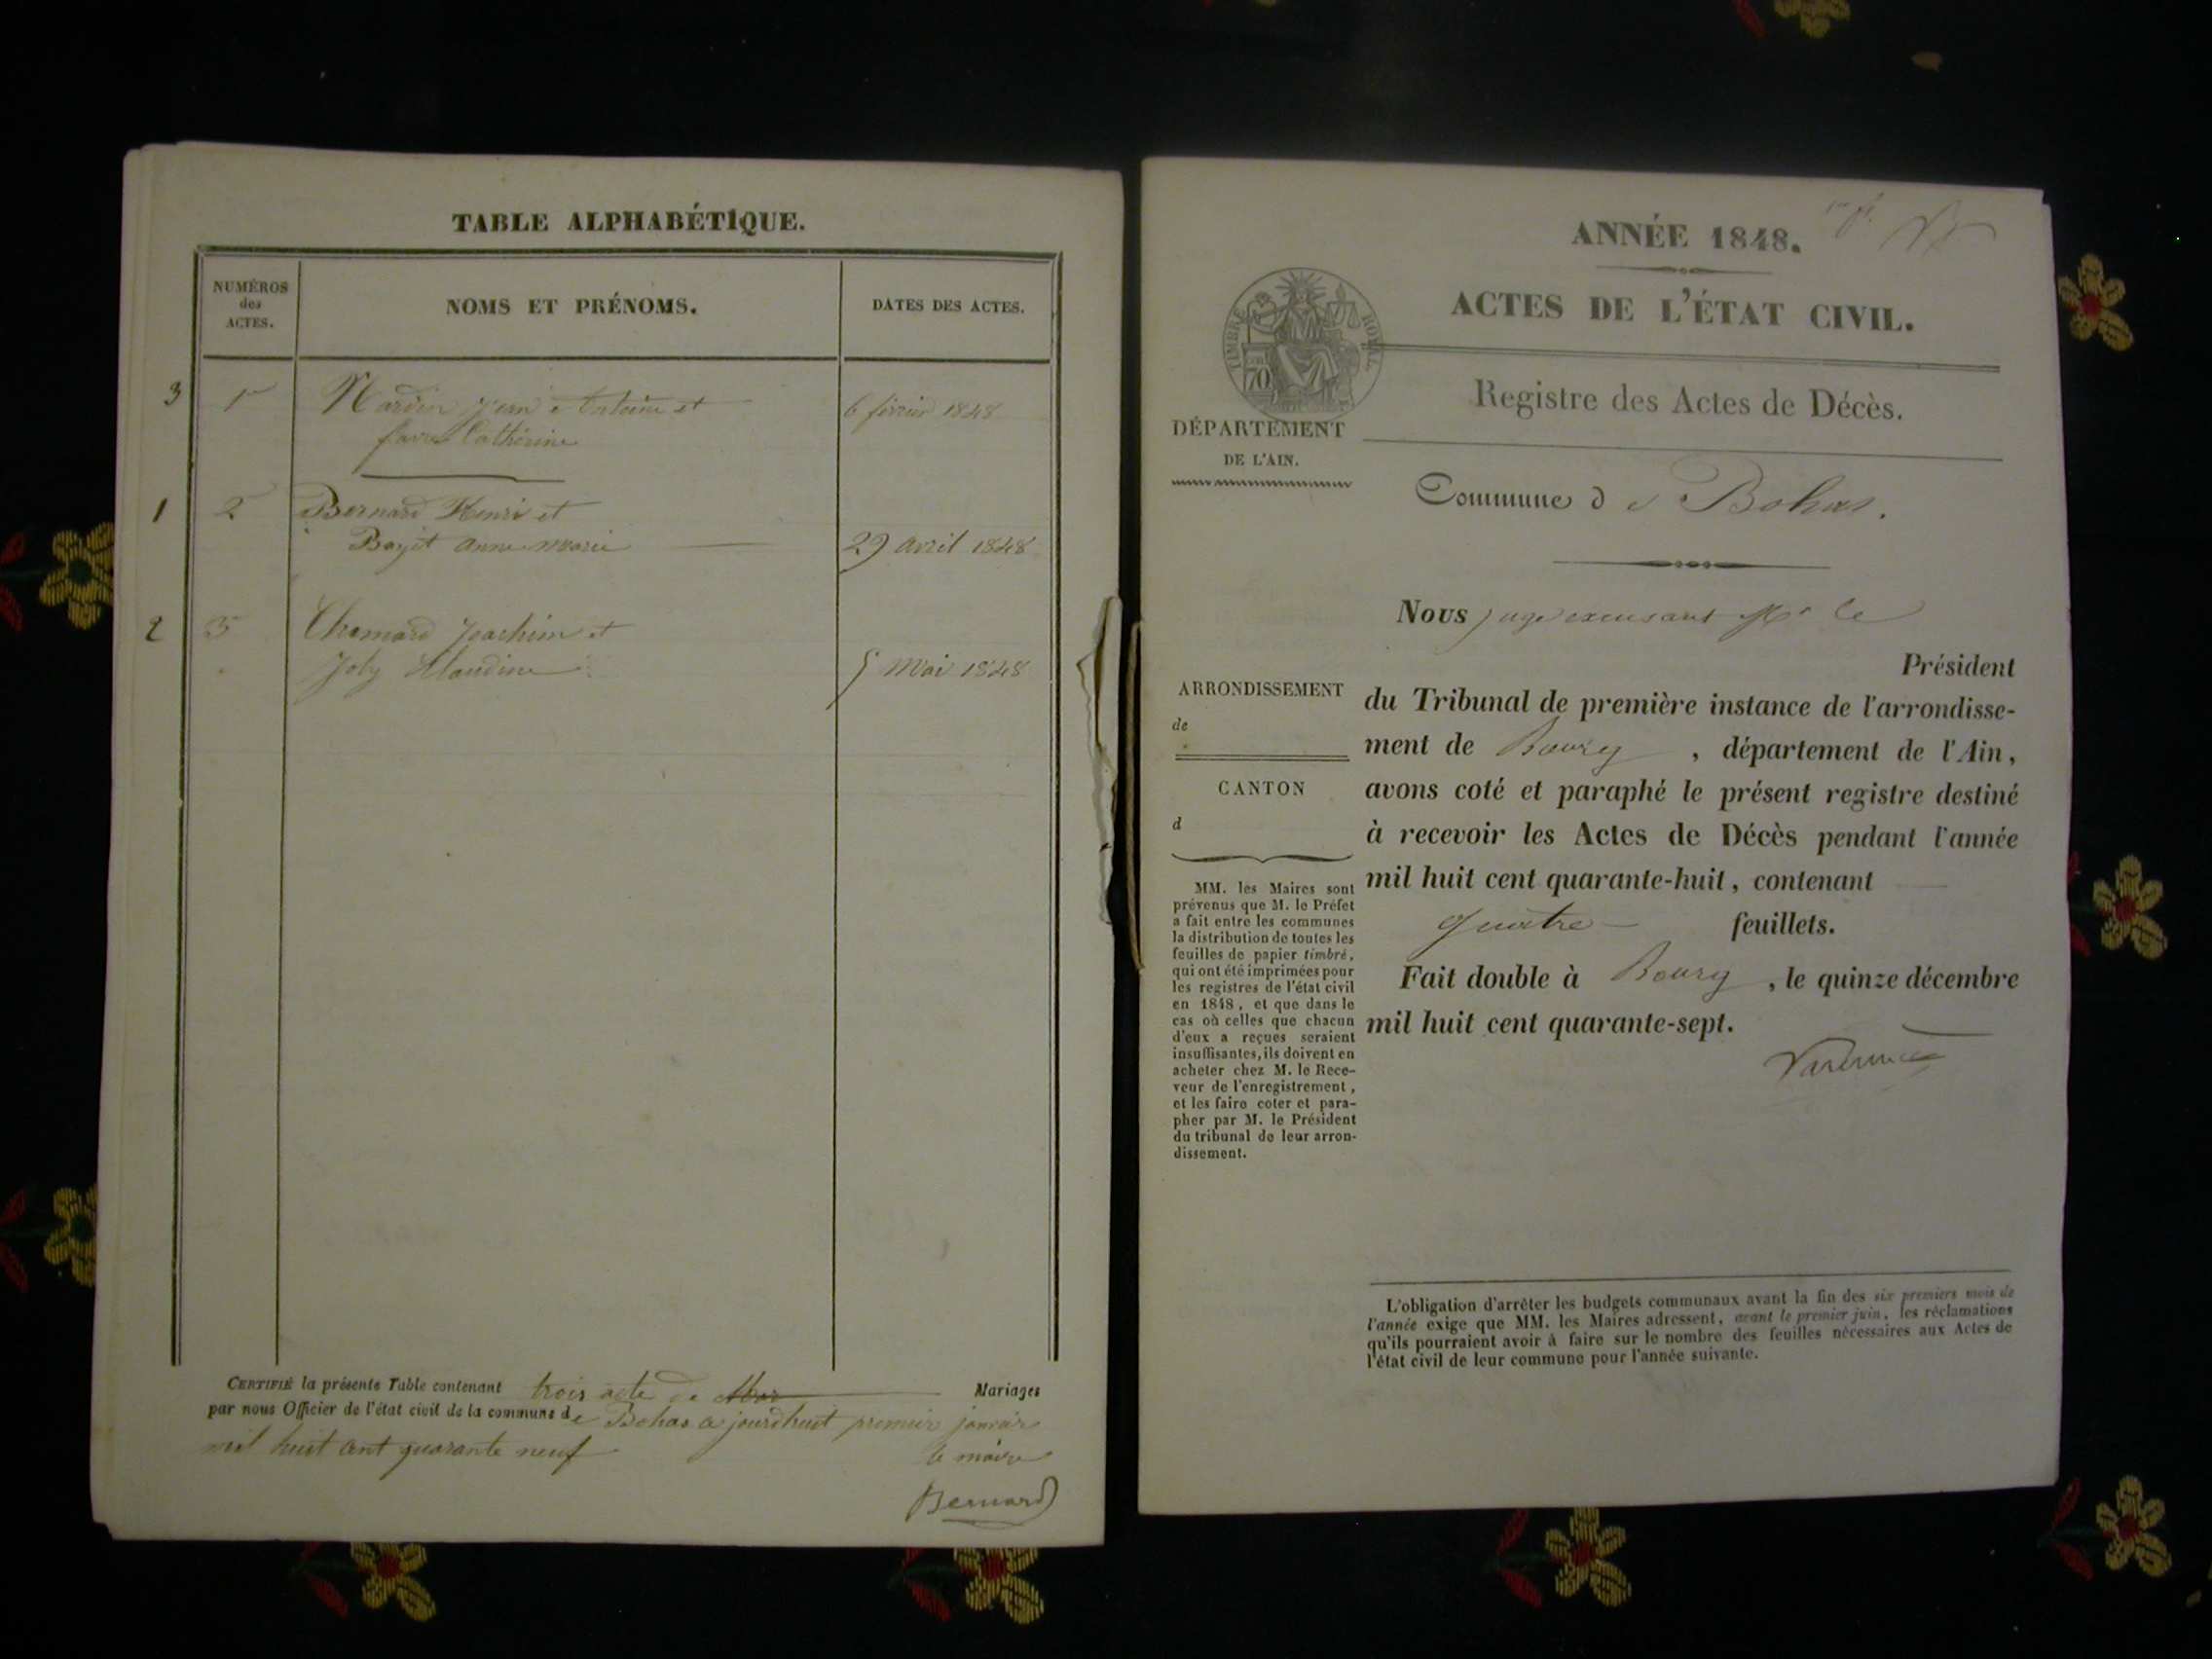 TABLE ALPHABÉTIQUE.
NUMÉROS
des
ACTES.
NOMS ET PRÉNOMS.
DATES DES ACTES.
3 1er Jean Antoine et 6 février 1848
favre Cathérine
1 2 Bernard Henri et
anne marie 29 avril 1848
2 3 Chamard Joachim et
Joly Claudine 5 Mai 1848
CERTIFIÉ la présente Table contenant trois acte de Mariages
par nous Officier de l'état civil de la commune de Bohas a jourdhuit premier janvier
mil huit cent quarante neuf
le maire
Bernard
1er f.
ANNÉE 1848.
ACTES DE L'ÉTAT CIVIL.
TIMBRE ROYAL
70
Registre des Actes de Décès.
DÉPARTEMENT
DE L'AIN.
Commune de Bohas.
Nous juge Mr le
Président
du Tribunal de première instance de l'arrondisse-
ment de Bourg, département de l'Ain,
avons coté et paraphé le présent registre destiné
à recevoir les Actes de Décès pendant l'année
mil huit cent quarante-huit, contenant
quatre feuillets.
Fait double à Bourg, le quinze décembre
mil huit cent quarante-sept.
ARRONDISSEMENT
de
CANTON
d
MM. les Maires sont
prévenus que M. le Préfet
a fait entre les communes
la distribution de toutes les
feuilles de papier timbré,
qui ont été imprimées pour
les registres de l'état civil
en 1848, et que dans le
cas où celles que chacun
d'eux a reçues seraient
insuffisantes, ils doivent en
acheter chez M. le Rece-
veur de l'enregistrement,
et les faire coter et para-
pher par M. le Président
du tribunal de leur arron-
dissement.
L'obligation d'arrêter les budgets communaux avant la fin des six premiers mois de
l'année exige que MM. les Maires adressent, avant le premier juin, les réclamations
qu'ils pourraient avoir à faire sur le nombre des feuilles nécessaires aux Actes de
l'état civil de leur commune pour l'année suivante.